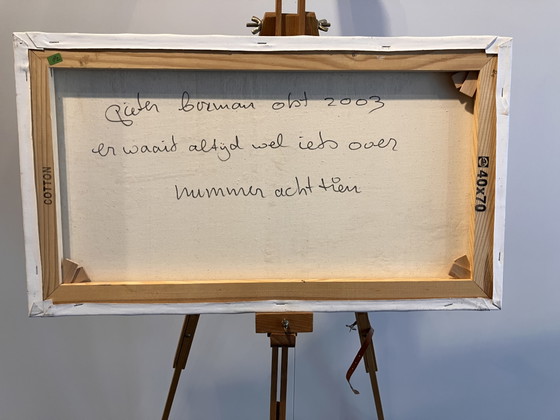 Pieter borman okt 2003
er waait altijd wel iets over
nummer acht tien
COTTON
40x70